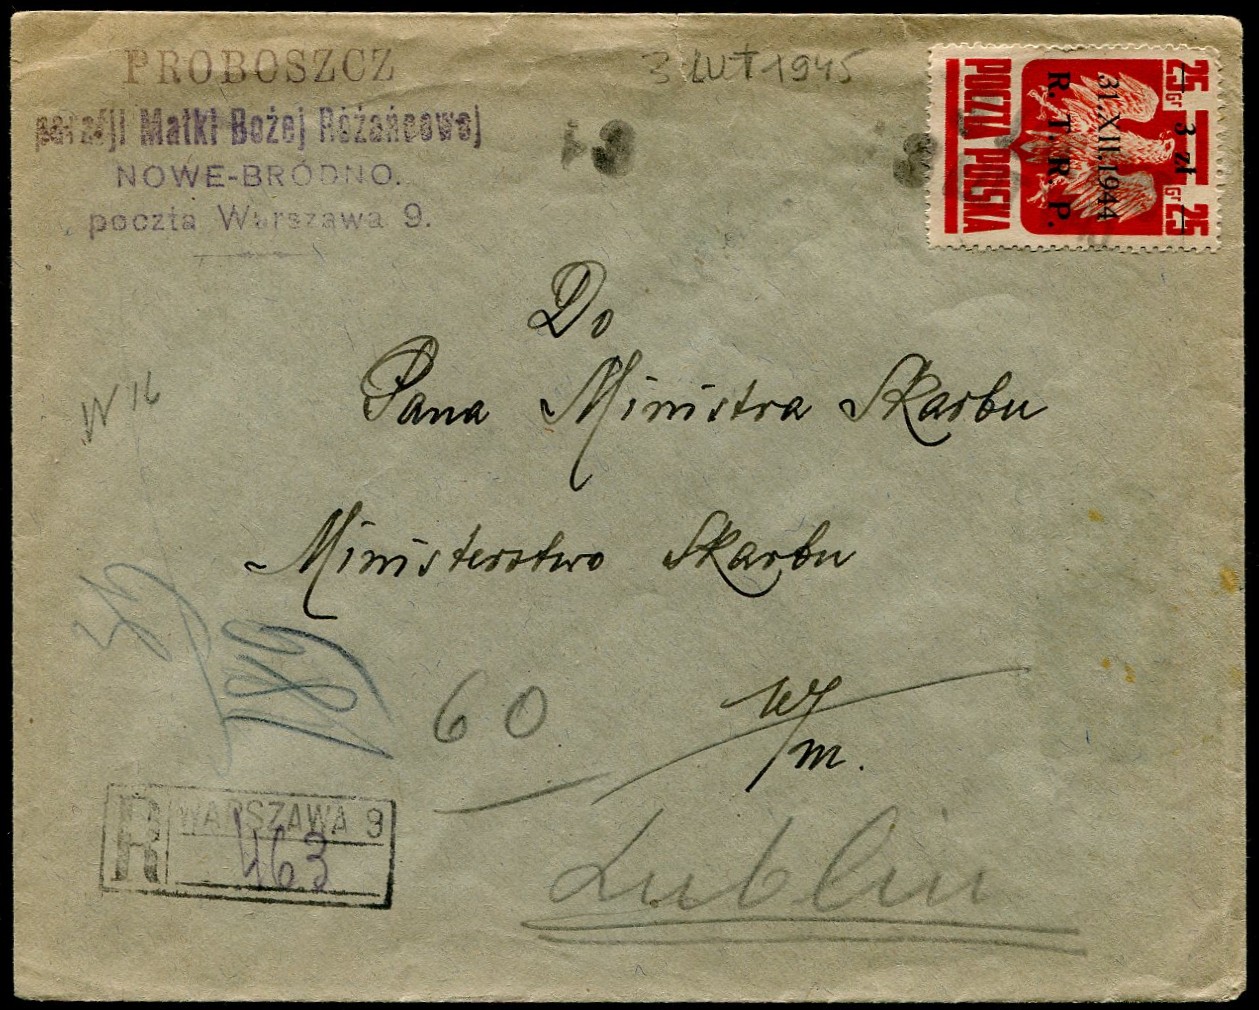 PROBOSZCZ
parafji Matki Bożej Różańcowej
NOWE-BRÓDNO.
poczta Warszawa 9.
3 LUT 1945
25 GR 3 zł GR 25
31.XII.1944
R. T. R. P.
POCZTA POLSKA
Do
Pana Ministra Skarbu
Ministerstwo Skarbu
W/m.
W 16
189
60
R WARSZAWA 9
463
Lublin